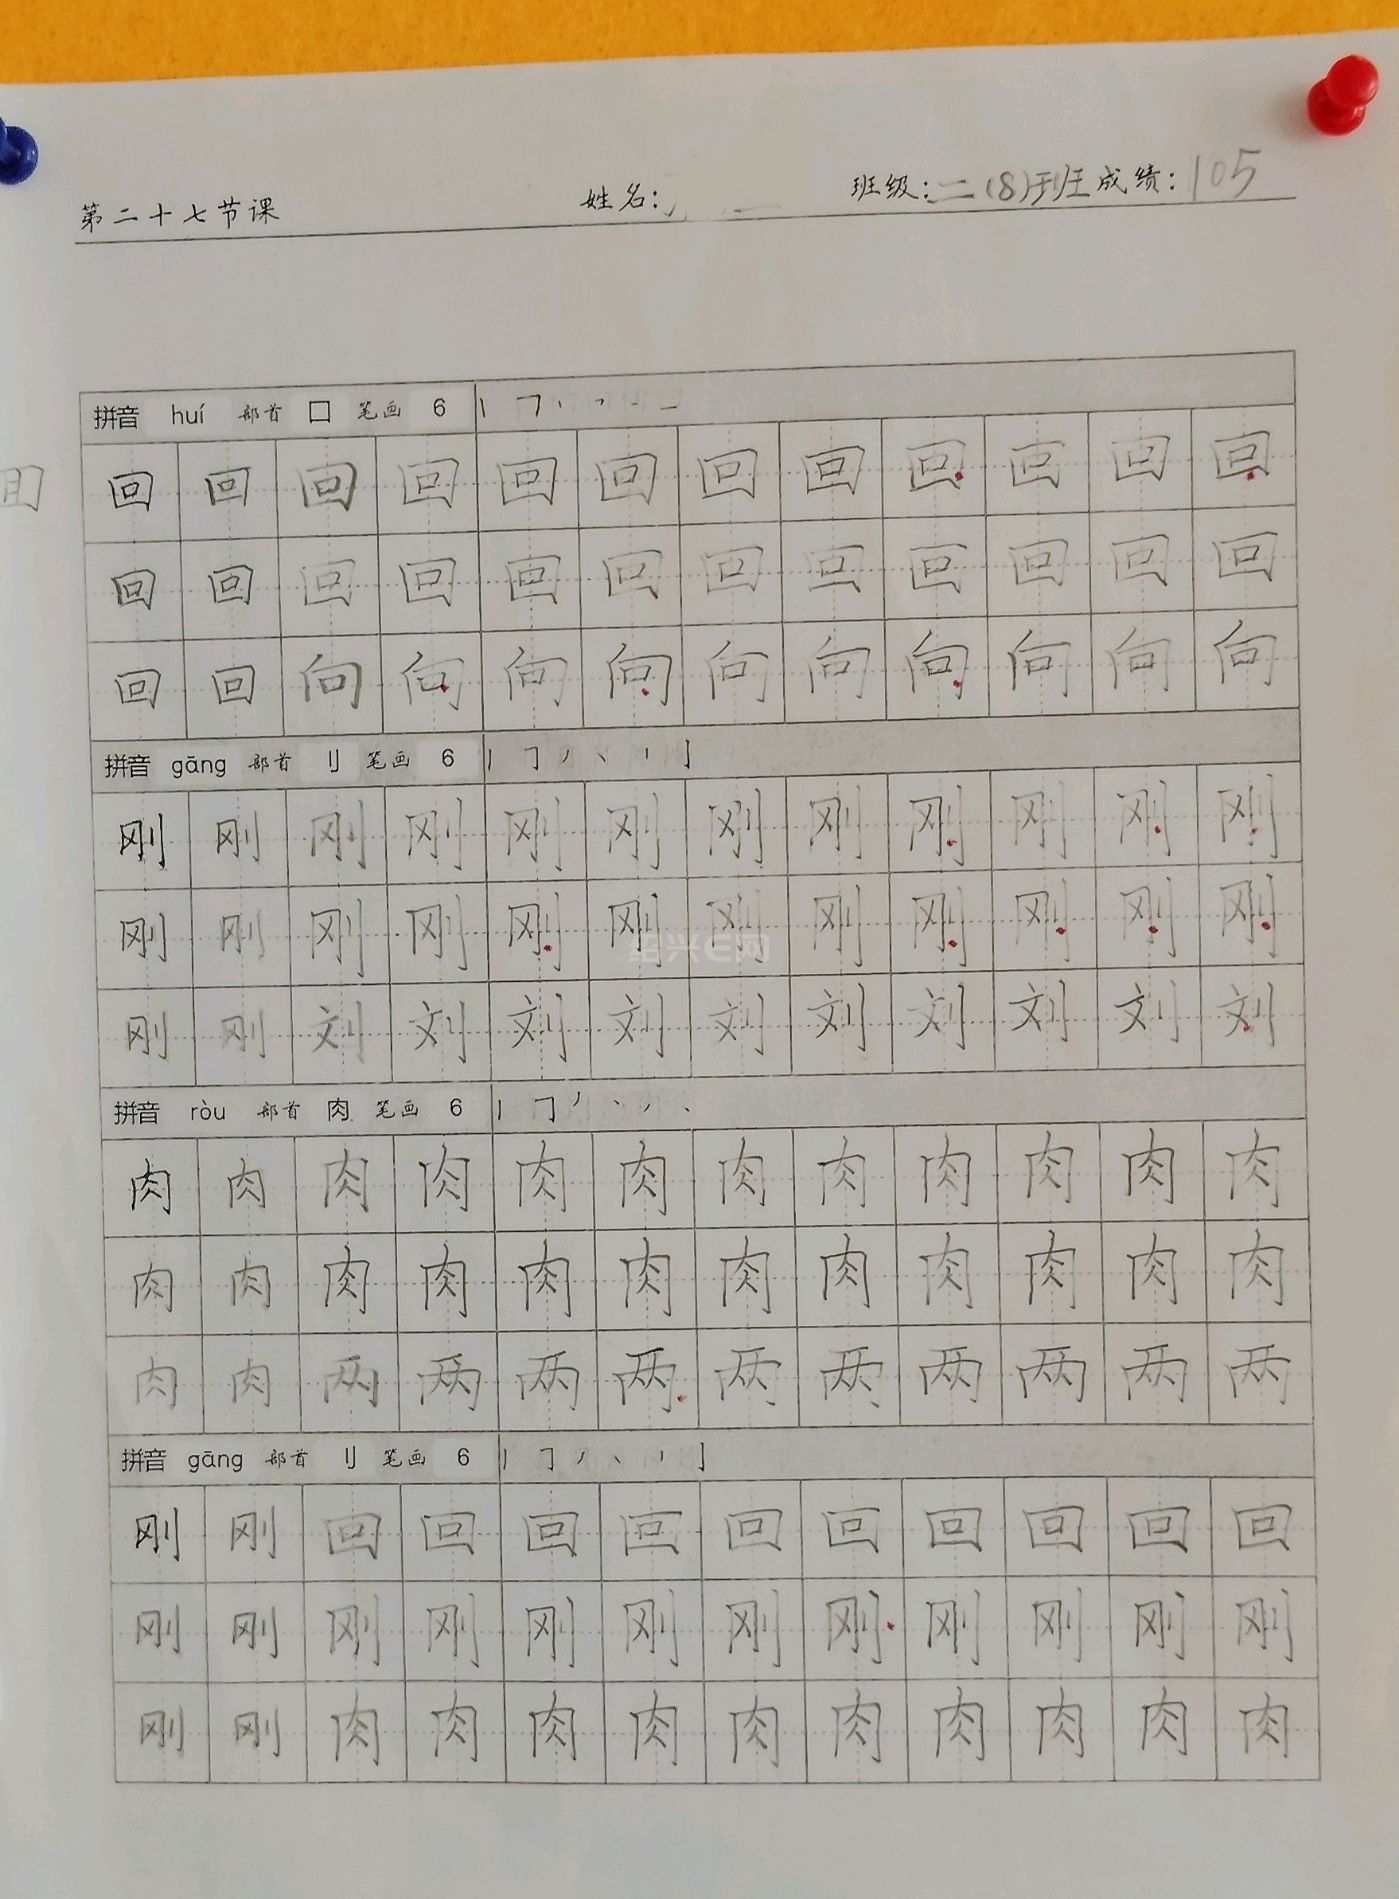 第二十七节课 姓名: 班级:二(8)班 成绩:105
拼音 huí 部首 囗 笔画 6
回回回回回回回回回回回回
回回回回回回回回回回回回
回回向向向向向向向向向向
拼音 gāng 部首 刂 笔画 6
刚刚刚刚刚刚刚刚刚刚刚刚
刚刚刚刚刚刚刚刚刚刚刚刚
刚刚刘刘刘刘刘刘刘刘刘刘
拼音 ròu 部首 肉 笔画 6
肉肉肉肉肉肉肉肉肉肉肉肉
肉肉肉肉肉肉肉肉肉肉肉肉
肉肉两两两两两两两两两两
拼音 gāng 部首 刂 笔画 6
刚刚回回回回回回回回回回
刚刚刚刚刚刚刚刚刚刚刚刚
刚刚肉肉肉肉肉肉肉肉肉肉
绍兴E网